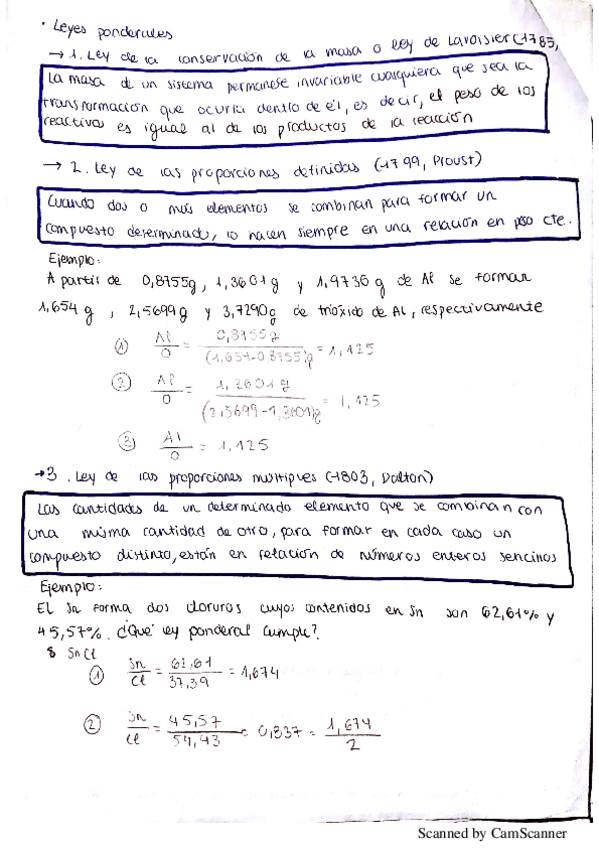 · Leyes ponderales
→ 1. Ley de la conservación de la masa o ley de Lavoisier (1785,
La masa de un sistema permanese invariable cualquiera que sea la
transformación que ocurra dentro de él, es decir, el peso de los
reactivos es igual al de los productos de la reacción
→ 2. Ley de las proporciones definidas (1799, Proust)
Cuando dos o más elementos se combinan para formar un
compuesto determinado, lo hacen siempre en una relación en peso cte.
Ejemplo:
A partir de 0,8755g, 1,3601g y 1,9736g de Al se forman
1,654 g, 2,5699g y 3,7290g de trióxido de Al, respectivamente
① Al/O = 0,8755g/(1,654-0,8755)g = 1,125
② Al/O = 1,3601g/(2,5699-1,3601)g = 1,125
③ Al/O = 1,125
→ 3. Ley de las proporciones multiples (1803, Dalton)
Las cantidades de un determinado elemento que se combinan con
una misma cantidad de otro, para formar en cada caso un
compuesto distinto, están en relación de números enteros sencinos
Ejemplo:
El Sn forma dos cloruros cuyos contenidos en Sn son 62,61% y
45,57%. ¿Qué ley ponderal cumple?
SnCl
① Sn/Cl = 62,61/37,39 = 1,674
② Sn/Cl = 45,57/54,43 = 0,837 = 1,674/2
Scanned by CamScanner